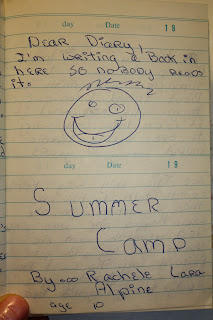 day Date 19
Dear Diary!
I'm writing a Book in
here so nobody reads
it.
day Date 19
Summer
Camp
By... Rachele Lara
Alpine
age 10